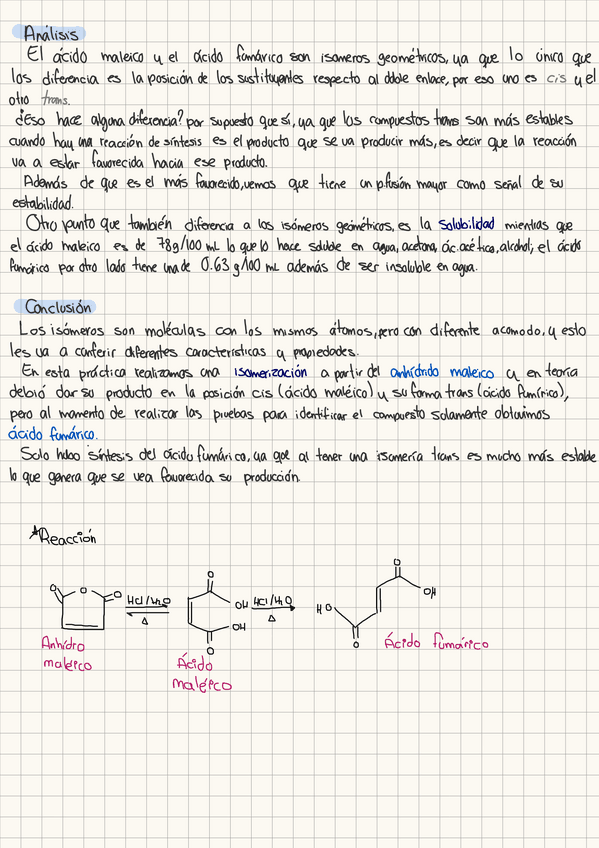 Análisis
El ácido maleico y el ácido fumárico son isomeros geométricos, ya que lo único que
los diferencia es la posición de los sustituyentes respecto al doble enlace, por eso uno es cis y el
otro trans.
¿Eso hace alguna diferencia? por supuesto que sí, ya que los compuestos trans son más estables
cuando hay una reacción de síntesis es el producto que se va producir más, es decir que la reacción
va a estar favorecida hacia ese producto.
Además de que es el más favorecido, vemos que tiene un p.fusión mayor como señal de su
estabilidad.
Otro punto que también diferencia a los isómeros geométricos, es la solubilidad mientras que
el ácido maleico es de 78g/100 mL lo que lo hace soluble en agua, acetona, ác. acético, alcohol; el ácido
fumárico por otro lado tiene una de 0.63 g/100 mL además de ser insoluble en agua.
Conclusión
Los isómeros son moléculas con los mismos átomos, pero con diferente acomodo, y esto
les va a conferir diferentes características y propiedades.
En esta práctica realizamos una isomerización a partir del anhídrido maleico y en teoría
debió dar su producto en la posición cis (ácido maléico) y su forma trans (ácido fumírico),
pero al momento de realizar las pruebas para identificar el compuesto solamente obtuvimos
ácido fumárico.
Solo hubo síntesis del ácido fumárico, ya que al tener una isomería trans es mucho más estable
lo que genera que se vea favorecida su producción.
*Reacción
O O O HCl/H2O Δ O OH OH O HCl/H2O Δ HO O O OH
Anhídro
maleico
Ácido
maléico
Ácido fumárico